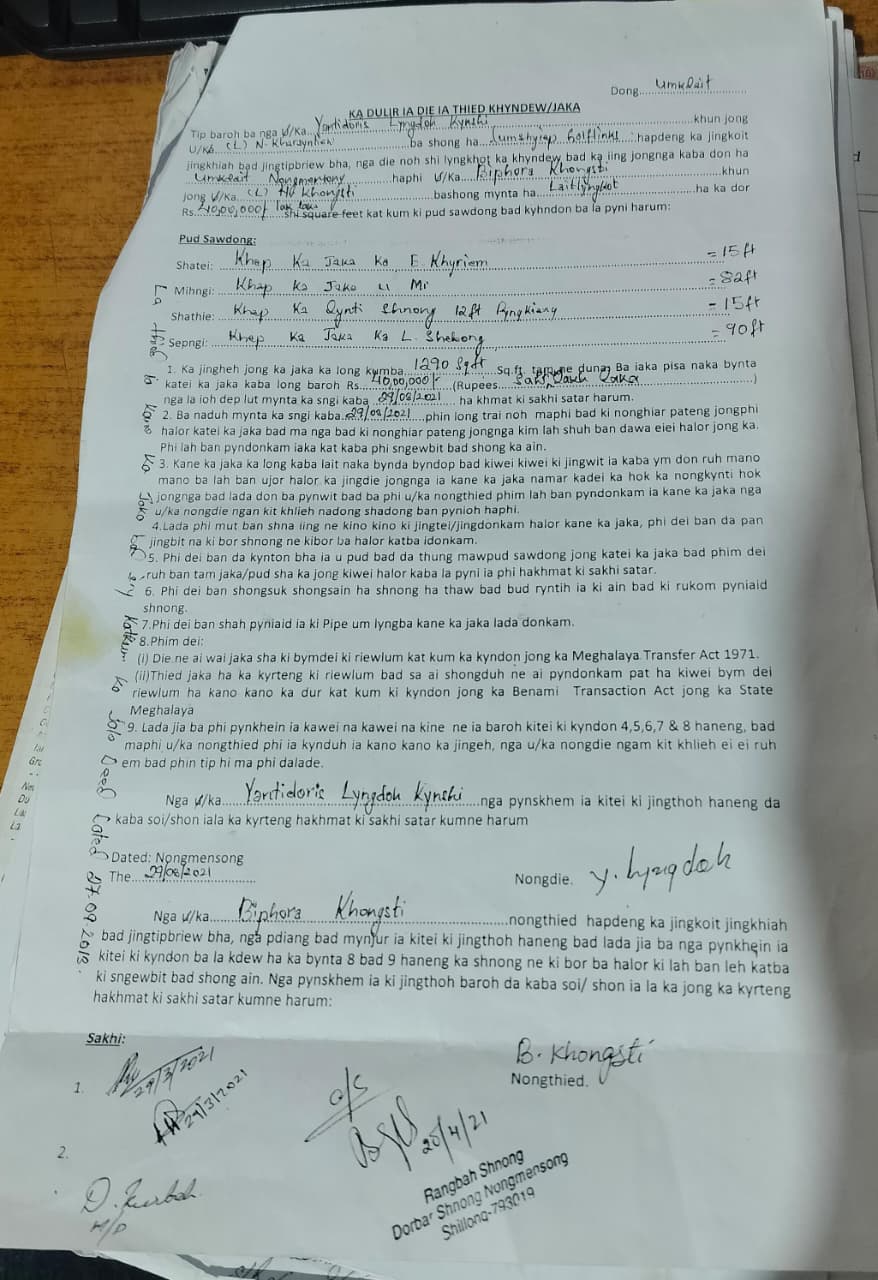 Dong....Umkdait
KA DULIR IA DIE IA THIED KHYNDEW/JAKA
Tip baroh ba nga U/Ka...Yantidoris Lyngdoh Kynshi...khun jong
U/Ka (L) N. Kharaynliew...ba shong ha...Lumshyiap Golflinks...hapdeng ka jingkoit
jingkhiah bad jingtipbriew bha, nga die noh shi lyngkhot ka khyndew bad ka iing jongnga kaba don ha
Umkdait Nongmensong...haphi U/Ka...Biphora Khongsti...khun
jong U/Ka...(L) HV Khongsti...bashong mynta ha...Laitlyngkot...ha ka dor
Rs. 40,00,000/...shi square feet kat kum ki pud sawdong bad kyhndon ba la pyni harum:
Pud Sawdong:
Shatei: Khap Ka Jaka Ka E. Khyriem = 15ft
Mihngi: Khap Ka Jaka U Mr = 82ft
Shathie: Khap Ka Synti Shnong 12ft Pyngkiang = 15ft
Sepngi: Khap Ka Jaka Ka L. Shekong = 90ft
1. Ka jingheh jong ka jaka ka long kumba...1290 Sqft...Sq.ft. tam ne duna. Ba iaka pisa naka bynta
katei ka jaka kaba long baroh Rs...40,00,000/-...(Rupees...)
nga la ioh dep lut mynta ka sngi kaba 29/08/2021 ha khmat ki sakhi satar harum.
2. Ba naduh mynta ka sngi kaba...29/08/2021...phin long trai noh maphi bad ki nonghiar pateng jongphi
halor katei ka jaka bad ma nga bad ki nonghiar pateng jongnga kim lah shuh ban dawa eiei halor jong ka.
Phi lah ban pyndonkam iaka kat kaba phi sngewbit bad shong ka ain.
3. Kane ka jaka ka long kaba lait naka bynda byndop bad kiwei kiwei ki jingwit ia kaba ym don ruh mano
mano ba lah ban ujor halor ka jingdie jongnga ia kane ka jaka namar kadei ka hok ka nongkynti hok
jongnga bad lada don ba pynwit bad ba phi u/ka nongthied phim lah ban pyndonkam ia kane ka jaka nga
u/ka nongdie ngan kit khlieh nadong shadong ban pynioh haphi.
4.Lada phi mut ban shna iing ne kino kino ki jingtei/jingdonkam halor kane ka jaka, phi dei ban da pan
jingbit na ki bor shnong ne kibor ba halor katba idonkam.
5. Phi dei ban da kynton bha ia u pud bad da thung mawpud sawdong jong katei ka jaka bad phim dei
ruh ban tam jaka/pud sha ka jong kiwei halor kaba la pyni ia phi hakhmat ki sakhi satar.
6. Phi dei ban shongsuk shongsain ha shnong ha thaw bad bud ryntih ia ki ain bad ki rukom pyniaid
shnong.
7.Phi dei ban shah pyniaid ia ki Pipe um lyngba kane ka jaka lada donkam.
8.Phim dei:
(i) Die ne ai wai jaka sha ki bymdei ki riewlum kat kum ka kyndon jong ka Meghalaya Transfer Act 1971.
(ii)Thied jaka ha ka kyrteng ki riewlum bad sa ai shongduh ne ai pyndonkam pat ha kiwei bym dei
riewlum ha kano kano ka dur kat kum ki kyndon jong ka Benami Transaction Act jong ka State
Meghalaya
9. Lada jia ba phi pynkhein ia kawei na kawei na kine ne ia baroh kitei ki kyndon 4,5,6,7 & 8 haneng, bad
maphi u/ka nongthied phi ia kynduh ia kano kano ka jingeh, nga u/ka nongdie ngam kit khlieh ei ei ruh
em bad phin tip hi ma phi dalade.
Nga U/ka...Yantidoris Lyngdoh Kynshi...nga pynskhem ia kitei ki jingthoh haneng da
kaba soi/shon iala ka kyrteng hakhmat ki sakhi satar kumne harum
Dated: Nongmensong
The...29/08/2021
Nongdie. Y. Lyngdoh
Nga U/ka...Biphora Khongsti...nongthied hapdeng ka jingkoit jingkhiah
bad jingtipbriew bha, nga pdiang bad mynjur ia kitei ki jingthoh haneng bad lada jia ba nga pynkhein ia
kitei ki kyndon ba la kdew ha ka bynta 8 bad 9 haneng ka shnong ne ki bor ba halor ki lah ban leh katba
ki sngewbit bad shong ain. Nga pynskhem ia ki jingthoh baroh da kaba soi/ shon ia la ka jong ka kyrteng
hakhmat ki sakhi satar kumne harum:
Sakhi:
B. Khongsti
Nongthied.
1. 29/3/2021
29/3/2021
2.
D. Kurbah
20/4/21
Rangbah Shnong
Dorbar Shnong Nongmensong
Shillong-793019
La thied ia kane ka Jaka katkum ka Sale Deed Dated 27.09.2013.